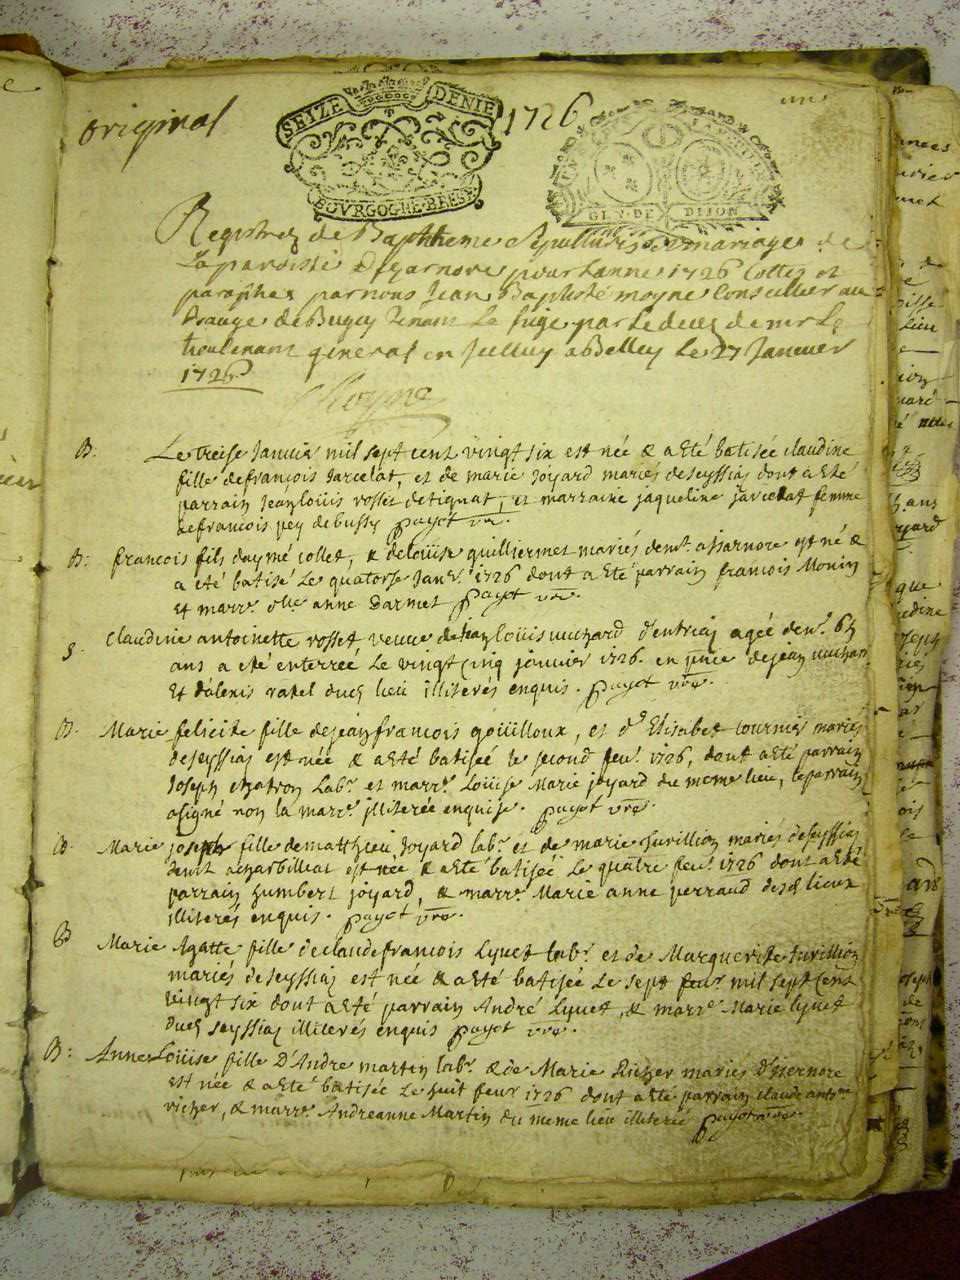 original
SEIZE DENIE
BOVRGOGNE·BRESE
1726
GEN·DE DIJON
Registrez de Baptheme Sepultures et mariage de
La paroisse d'Izarnore pour Lanne 1726 Cottez et
paraphez par nous Jean Baptiste moyne Conseiller au
de Bugey tenant Le siege par Le deces de mr Le
lieutenant general en a Belley Le 27 Janvier
1726
Moyne
B. Le treise Janvier mil sept cent vingt six est née & a eté batisée claudine
fille de françois Jarcelat, et de marie Joyard mariés de seyssiaz dont a eté
parrain Jean louïs rosset de tignat, et marraine jaqueline jarcelat femme
de francois pey de bussy payot vre.
B: francois fils daymé collet, & de louïse quilliermet mariés demt. a isarnore est né &
a eté batisé Le quatorse Janvr. 1726 dont a eté parrain francois Monin
et marre. anne Darmet payot vre.
S. Claudine antoinette rosset veuve de jean louïs vuchard d'entriaz agée denv. 65
ans a eté enterrée Le vingt cinq janvier 1726. en pnce de jean vuchard
et dalexis ravel dud lieu illiterés enquis. payot vre.
B. Marie felicité fille de jean francois goüilloux, et d'Elisabet tournier mariés
de seyssiaz est née & a eté batisée le second fevr. 1726, dont a eté parrain
Joseph chatron Labr. et marre. Louise Marie joyard du meme lieu, le parrain
a signé non la marre. illiterée enquise. payot vre.
B. Marie joseph fille de matthieu Joyard labr. et de marie Juvillion mariés de seyssiaz
a charbilliat est née & a eté batiseé Le quatre fevr. 1726 dont a eté
parrain humbert joyard, & marre. Marie anne perraud desd lieux
illiterés enquis. payot vre.
B Marie Agatte fille de claude francois Lyvet labr. et de Marguerite Juvillion
mariés de seyssiaz est née & a eté batisée Le sept fevr. mil sept cent
vingt six dont a eté parrain André Lyvet, & marre. Marie lyvet
dud seyssiaz illiterés enquis payot vre.
B: Anne Louïse fille D'Andre martin labr. & de Marie Richer mariés D'izernore
est née & a eté batisée Le huit fevr 1726 dont a eté parrain claude antne
richer, & marre. Andreanne Martin du meme lieu illiteré payot vre.